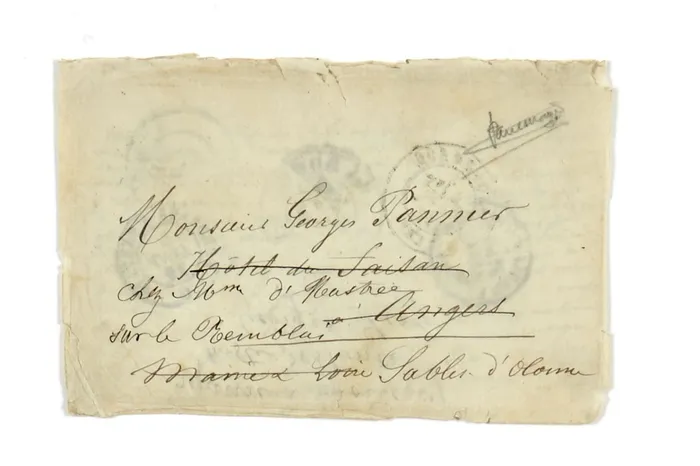 Monsieur Georges Pannier
Hôtel du Faisan
chez Mme d'
à Angers
sur le Remblai
Maine & Loire Sables d'Olonne